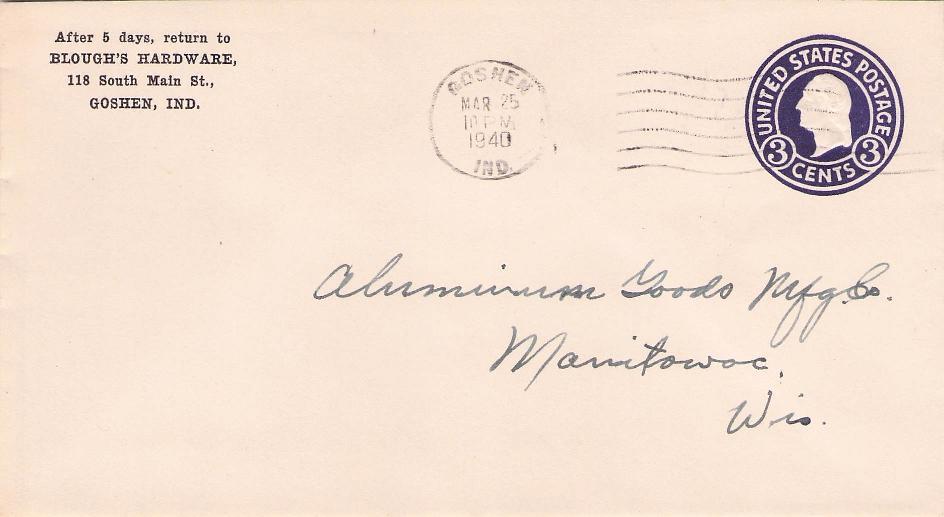 After 5 days, return to
BLOUGH'S HARDWARE,
118 South Main St.,
GOSHEN, IND.
GOSHEN
MAR 25
10 PM
1940
IND.
UNITED STATES POSTAGE
3 CENTS 3
Aluminum Goods Mfg. Co.
Manitowoc,
Wis.